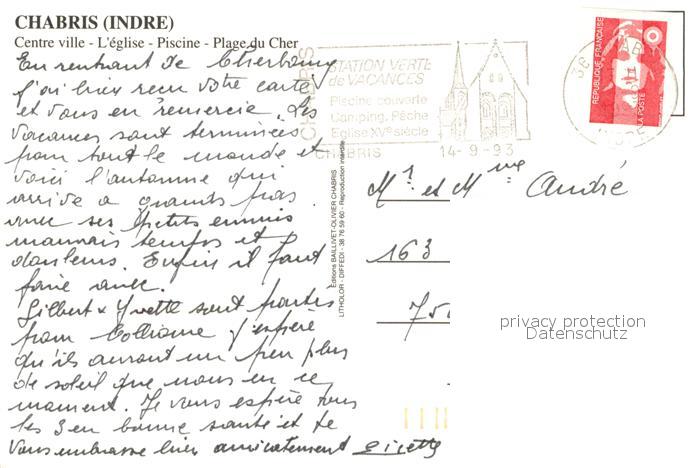 CHABRIS (INDRE)
Centre ville - L'église - Piscine - Plage du Cher
En rentrant de Cherbourg
j'ai bien reçu votre carte
et vous en remercie. Les
vacances sont terminées
pour tout le monde et
voici l'automne qui
arrive à grands pas.
avec ses petits ennuis
mauvais temps et
douleurs. Enfin il faut
faire avec.
Gilbert & Yvette sont partis
pour Collioure j'espère
qu'ils auront un peu plus
de soleil que nous en ce
moment. Je vous espère tous
les 3 en bonne santé et te
vous embrasse bien amicalement Ginette
CHABRIS
STATION VERTE
de VACANCES
Piscine couverte
Camping, Pêche
Eglise XVe siècle
CHABRIS 14-9-93
REPUBLIQUE FRANÇAISE
LA POSTE
36 CHABRIS
INDRE
Editions BAILLIVET-OLIVIER CHABRIS
LITHOLOR - DIFFEDI - 38 76 59 60 - Reproduction interdite
Mr et Mme André
163
750
privacy protection
Datenschutz